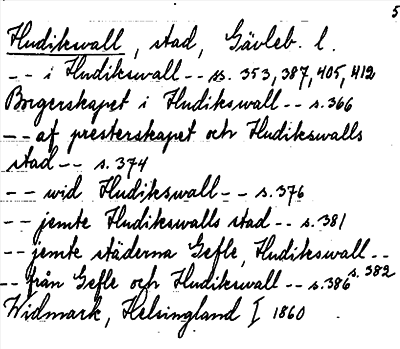 5
Hudikswall, stad, Gävleb. l.
-- i Hudikswall -- ss. 353, 387, 405, 412
Borgerskapet i Hudikswall -- s. 366
-- af presterskapet och Hudikswalls
stad -- s. 374
-- wid Hudikswall -- s. 376
-- jemte Hudikswalls stad -- s. 381
-- jemte städerna Gefle, Hudikswall --
s. 382
-- från Gefle och Hudikswall -- s. 386
Widmark, Helsingland I 1860